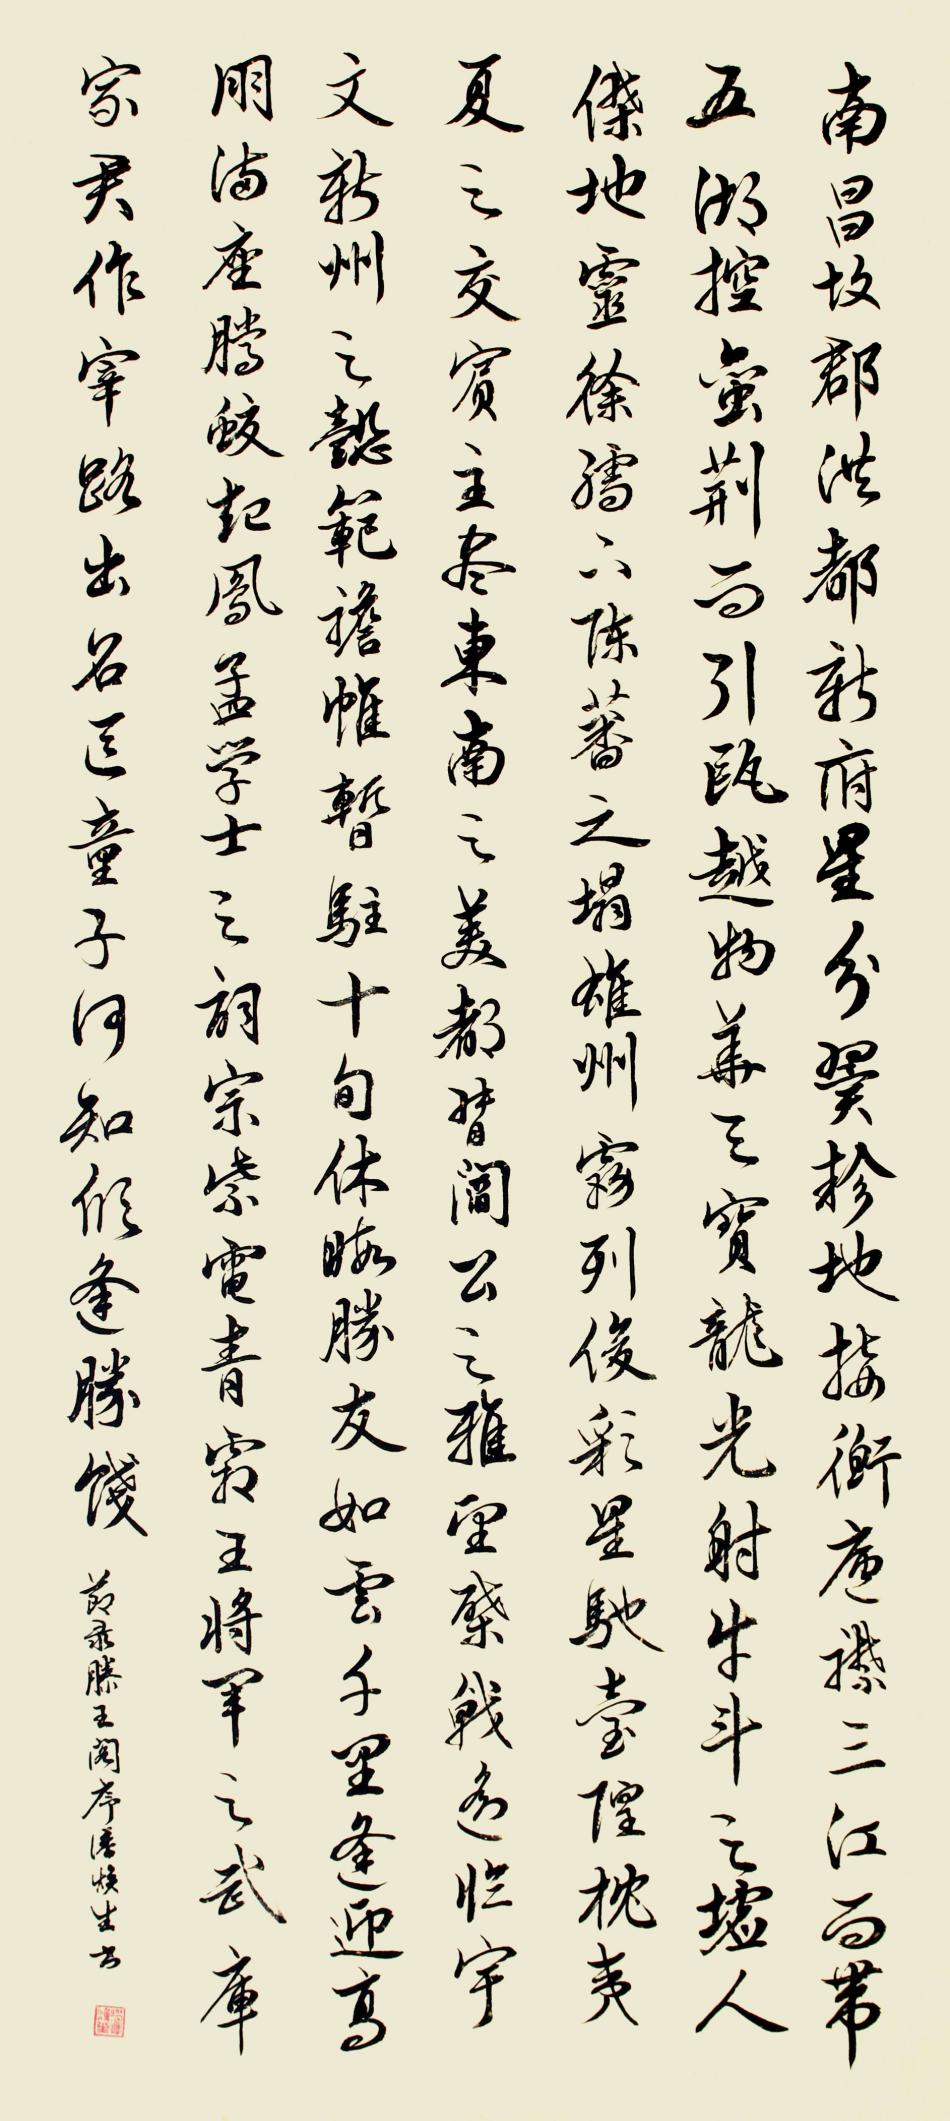 南昌故郡洪都新府星分翼軫地接衡廬襟三江而帶
五湖控蠻荊而引甌越物華天寶龍光射牛斗之墟人
傑地靈徐孺下陳蕃之塌雄州霧列俊彩星馳臺隍枕夷
夏之交賓主尽東南之美都督閻公之雅望棨戟遙臨宇
文新州之懿範襜帷暫駐十旬休暇勝友如雲千里逢迎高
朋滿座騰蛟起鳳孟学士之詞宗紫電青霜王將軍之武庫
家君作宰路出名區童子何知躬逢勝餞
節录滕王閣序潘焕生书